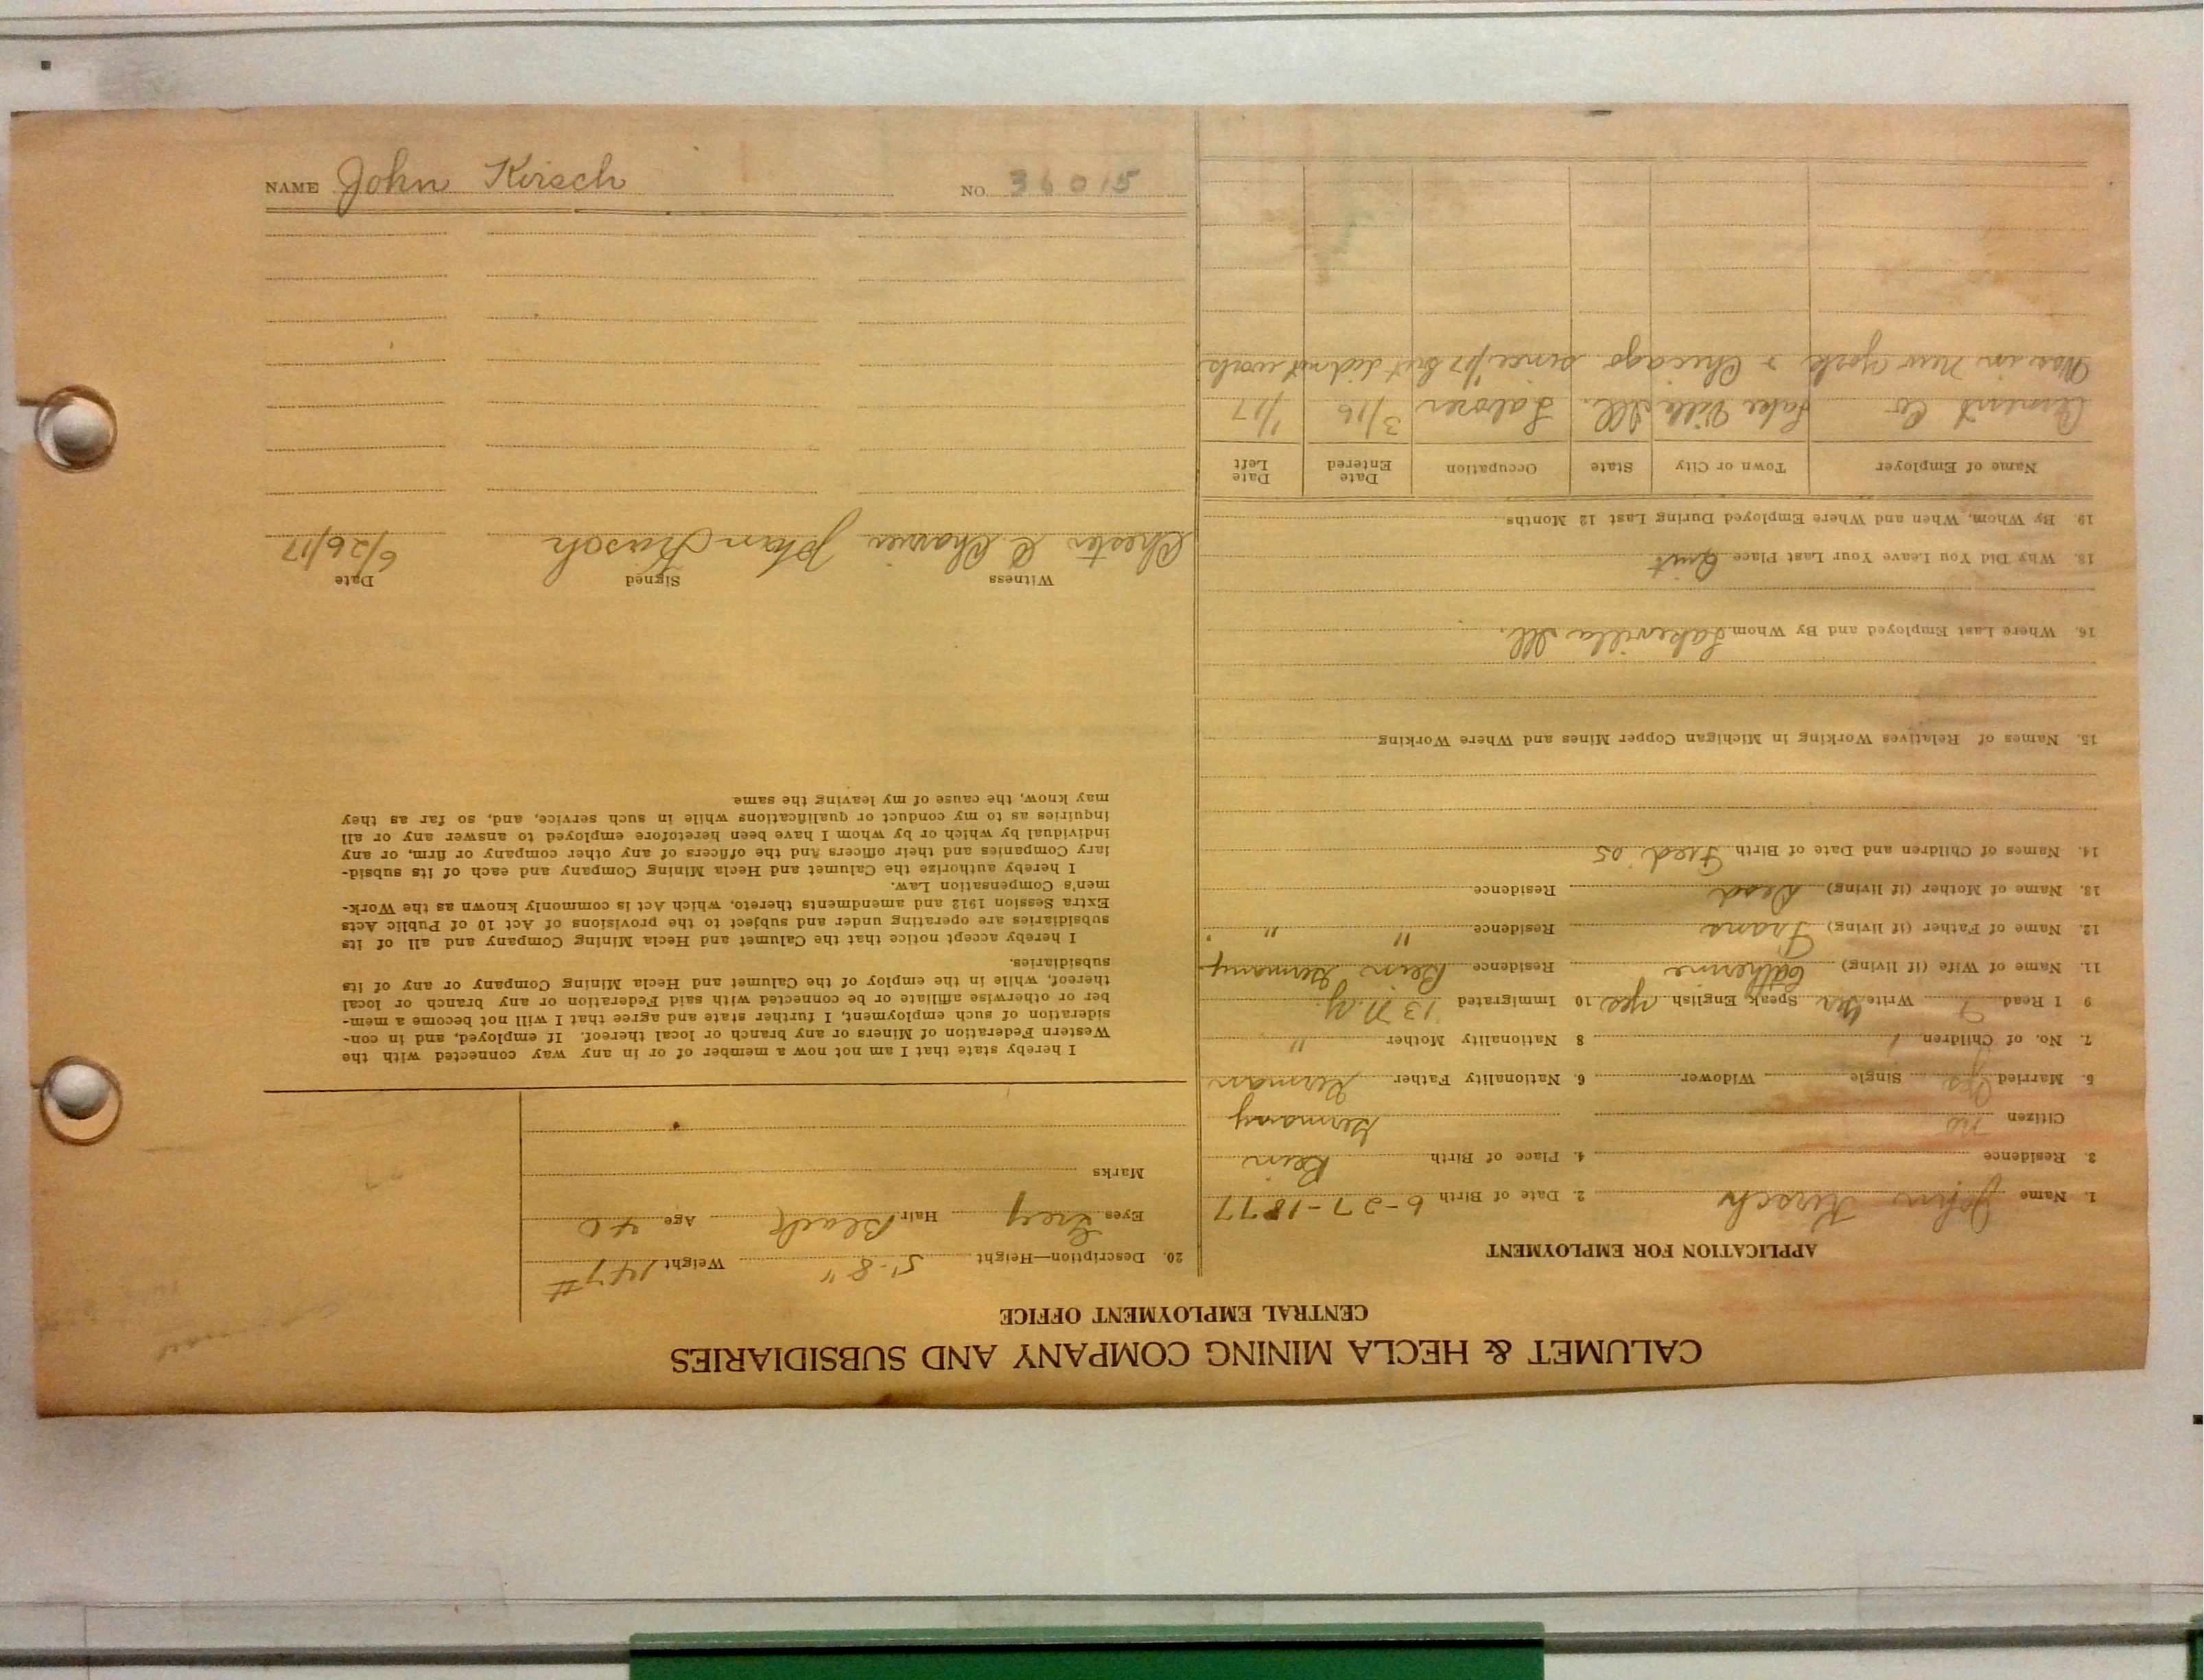 NAME John Kirsch NO. 36015
CALUMET & HECLA MINING COMPANY AND SUBSIDIARIES
CENTRAL EMPLOYMENT OFFICE
APPLICATION FOR EMPLOYMENT
1. Name John Kirsch 2. Date of Birth 6-27-1877
3. Residence 4. Place of Birth Rein
Citizen no Germany
5. Married yes Single Widower 6. Nationality Father German
7. No. of Children 1 8 Nationality Mother "
9 I Read Write Speak English yes 10 Immigrated '13 N.Y.
11. Name of Wife (if living) Catherine Residence Rein Germany
12. Name of Father (if living) Frans Residence " "
13. Name of Mother (if living) Dead Residence
14. Names of Children and Date of Birth Fred '05
15. Names of Relatives Working in Michigan Copper Mines and Where Working
16. Where Last Employed and By Whom Lakevilla Ill.
18. Why Did You Leave Your Last Place Quit
19. By Whom, When and Where Employed During Last 12 Months
Name of Employer Town or City State Occupation Date Entered Date Left
Cement Co Lake Villa Ill. Laborer 3/16 1/17
Was in New York & Chicago since 1/17 but did not work
20. Description—Height 5'-8" Weight 147#
Eyes Grey Hair Black Age 40
Marks
I hereby state that I am not now a member of or in any way connected with the
Western Federation of Miners or any branch or local thereof. If employed, and in con-
sideration of such employment, I further state and agree that I will not become a mem-
ber or otherwise affiliate or be connected with said Federation or any branch or local
thereof, while in the employ of the Calumet and Hecla Mining Company or any of its
subsidiaries.
I hereby accept notice that the Calumet and Hecla Mining Company and all of its
subsidiaries are operating under and subject to the provisions of Act 10 of Public Acts
Extra Session 1912 and amendments thereto, which Act is commonly known as the Work-
men's Compensation Law.
I hereby authorize the Calumet and Hecla Mining Company and each of its subsid-
iary Companies and their officers and the officers of any other company or firm, or any
individual by which or by whom I have been heretofore employed to answer any or all
inquiries as to my conduct or qualifications while in such service, and, so far as they
may know, the cause of my leaving the same
Witness Signed Date
Chester C. Johan Kirsch 6/26/17